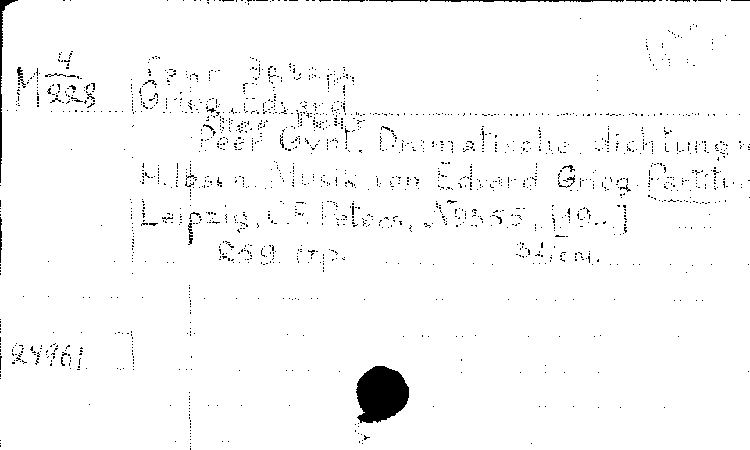 M 4/228
Григ Эдвард
Grieg, Edvard
Peer Gynt. Dramatische dichtung
H. Ibsen. Musik von Edvard Grieg. Partitu
Leipzig, C. F. Peters, N 9355, [19..]
259 стр. 31 cm.
24961